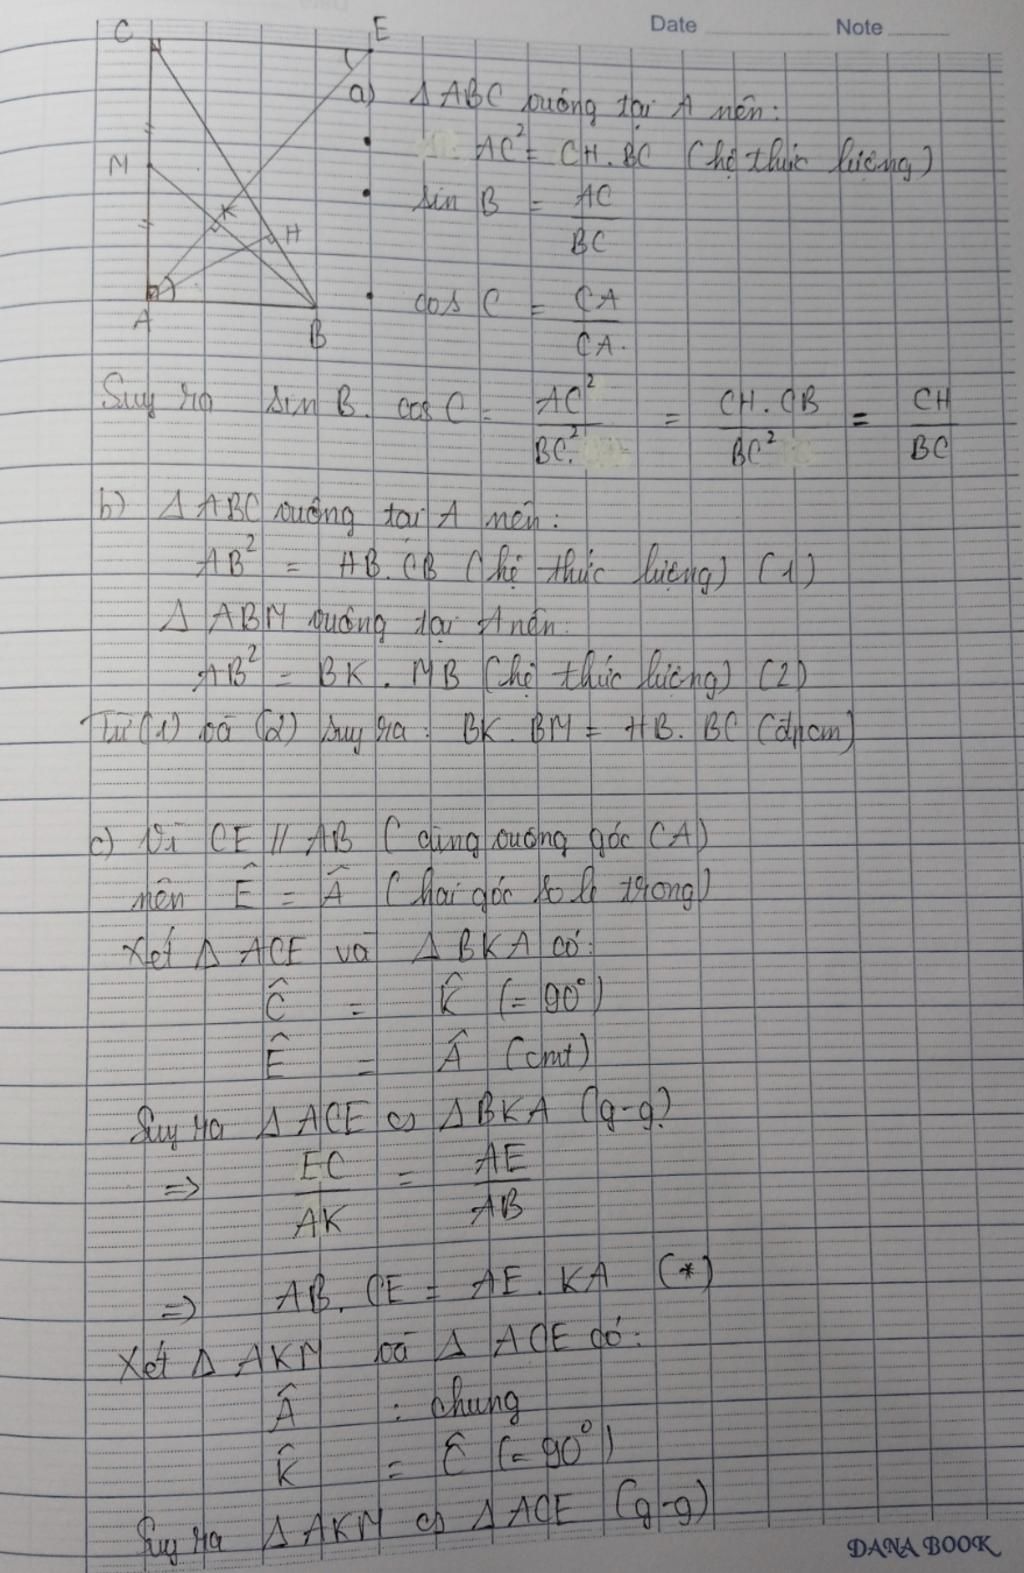 Date Note
C E
M
K
H
A
B
a) Δ ABC vuông tại A nên:
• AC² = CH. BC (hệ thức lượng)
• sin B = AC / BC
• cos C = CA / CA.
Suy ra sin B. cos C = AC² / BC². = CH. CB / BC² = CH / BC
b) Δ ABC vuông tại A nên:
AB² = HB. CB (hệ thức lượng) (1)
Δ ABM vuông tại A nên:
AB² = BK. MB (hệ thức lượng) (2)
Từ (1) và (2) suy ra: BK. BM = HB. BC (đpcm)
c) Vì CE // AB (cùng vuông góc CA)
nên Ê = Â (hai góc so le trong)
Xét Δ ACE và Δ BKA có:
Ĉ = K̂ (= 90°)
Ê = Â (cmt)
Suy ra Δ ACE ∽ Δ BKA (g-g)
=> EC / AK = AE / AB
=> AB. CE = AE. KA (*)
Xét Δ AKM và Δ ACE có:
Â : chung
K̂ = Ĉ (= 90°)
Suy ra Δ AKM ∽ Δ ACE (g-g)
DANA BOOK